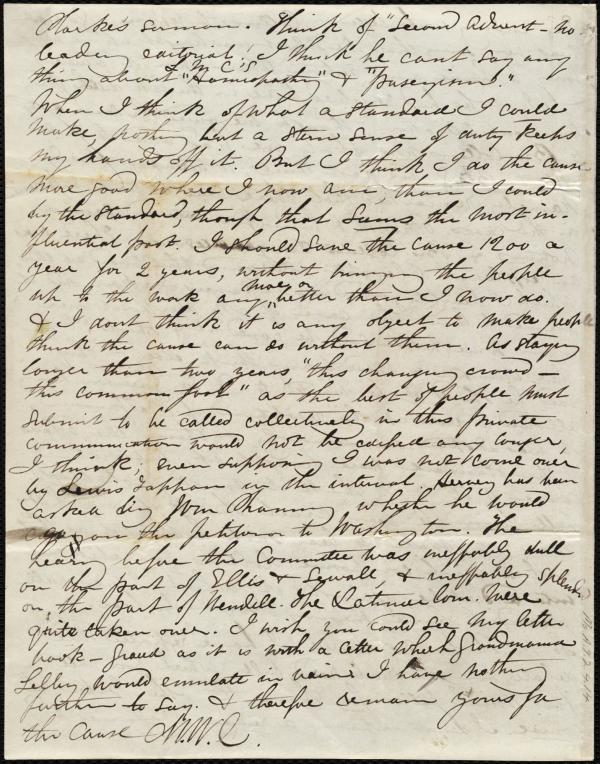 Clarke's sermon. Think of "Second Advent - no
leading editorial! I think he cant say any
L. M. C.'s
thing about "Homeopathy" & "Puseyism."
When I think of what a Standard I could
make, posting but a stern sense of duty keeps
my hands off it. But I think I do the cause
more good where I now am, than I could
by the Standard, though that seems the most in-
fluential post. I should save the cause 1200 a
year for 2 years, without bringing the people
more or
up to the work any better than I now do.
& I dont think it is any object to make people
think the cause can do without them. As staying
longer than two years, "this changing crowd -
this common fool" as the best of people must
submit to be called collectively in this private
communication would not be any longer,
I think, even supposing I was not come over
by Lewis Tappan in the interval. Hervey has been
asked by Wm Channing whether he would
carry on the petition to Washington. The
hearing before the Committee was ineffably dull
on the part of Ellis & Sewall, & ineffably splendid
on the part of Wendell. The Latimer Com. were
quite taken over. I wish you could see my letter
book - graced as it is with a letter which Grandmama
Selby would emulate in vain. I have nothing
further to say. & therefore remain yours for
the cause M.W.C.